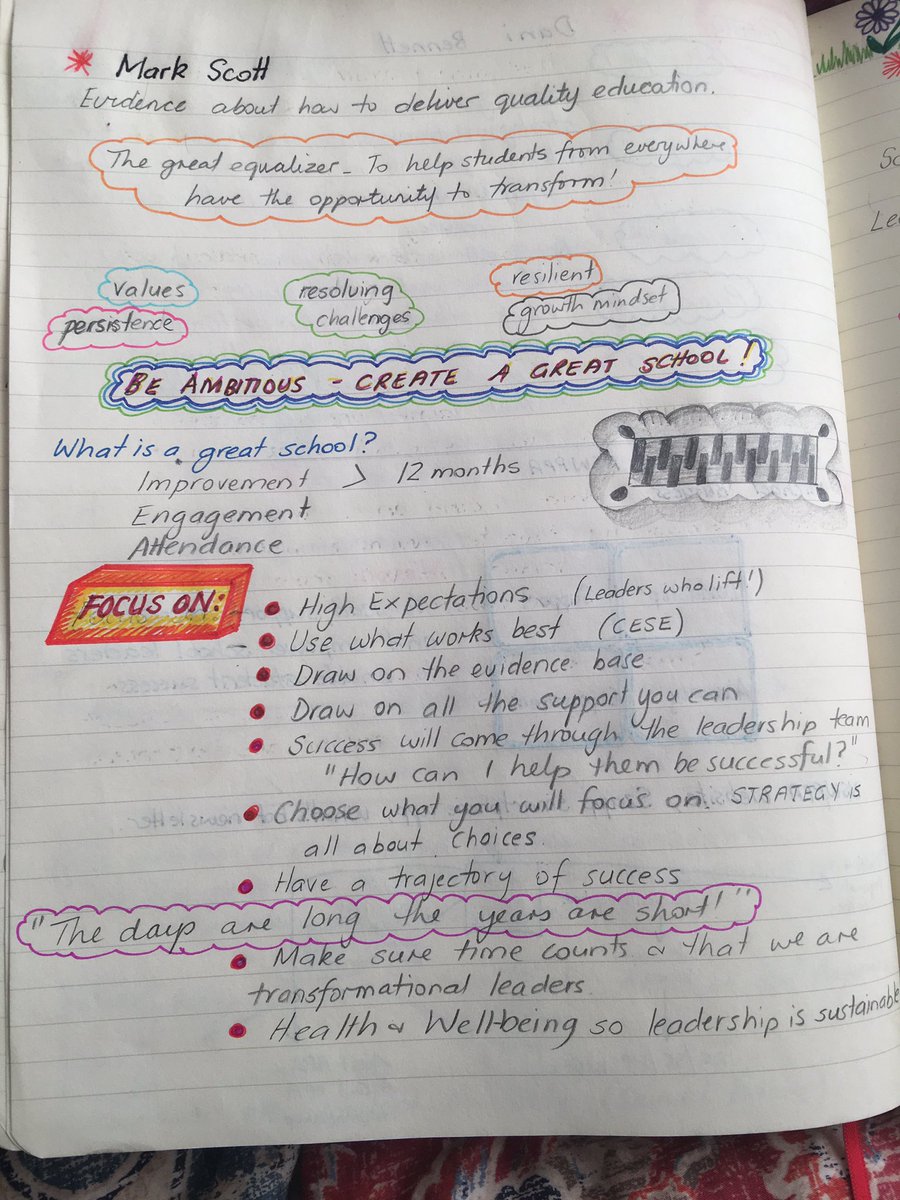 Mark Scott
Evidence about how to deliver quality education.
The great equalizer - To help students from everywhere
have the opportunity to transform!
values
persistence
resolving
challenges
resilient
growth mindset
BE AMBITIOUS - CREATE A GREAT SCHOOL!
What is a great school?
Improvement > 12 months
Engagement
Attendance
FOCUS ON:
• High Expectations (Leaders who lift!)
- • Use what works best (CESE)
• Draw on the evidence base
• Draw on all the support you can
• Success will come through the leadership team
"How can I help them be successful?"
• Choose what you will focus on. STRATEGY is
all about choices.
• Have a trajectory of success
"The days are long the years are short!"
• Make sure time counts & that we are
transformational leaders.
• Health & Well-being so leadership is sustainable